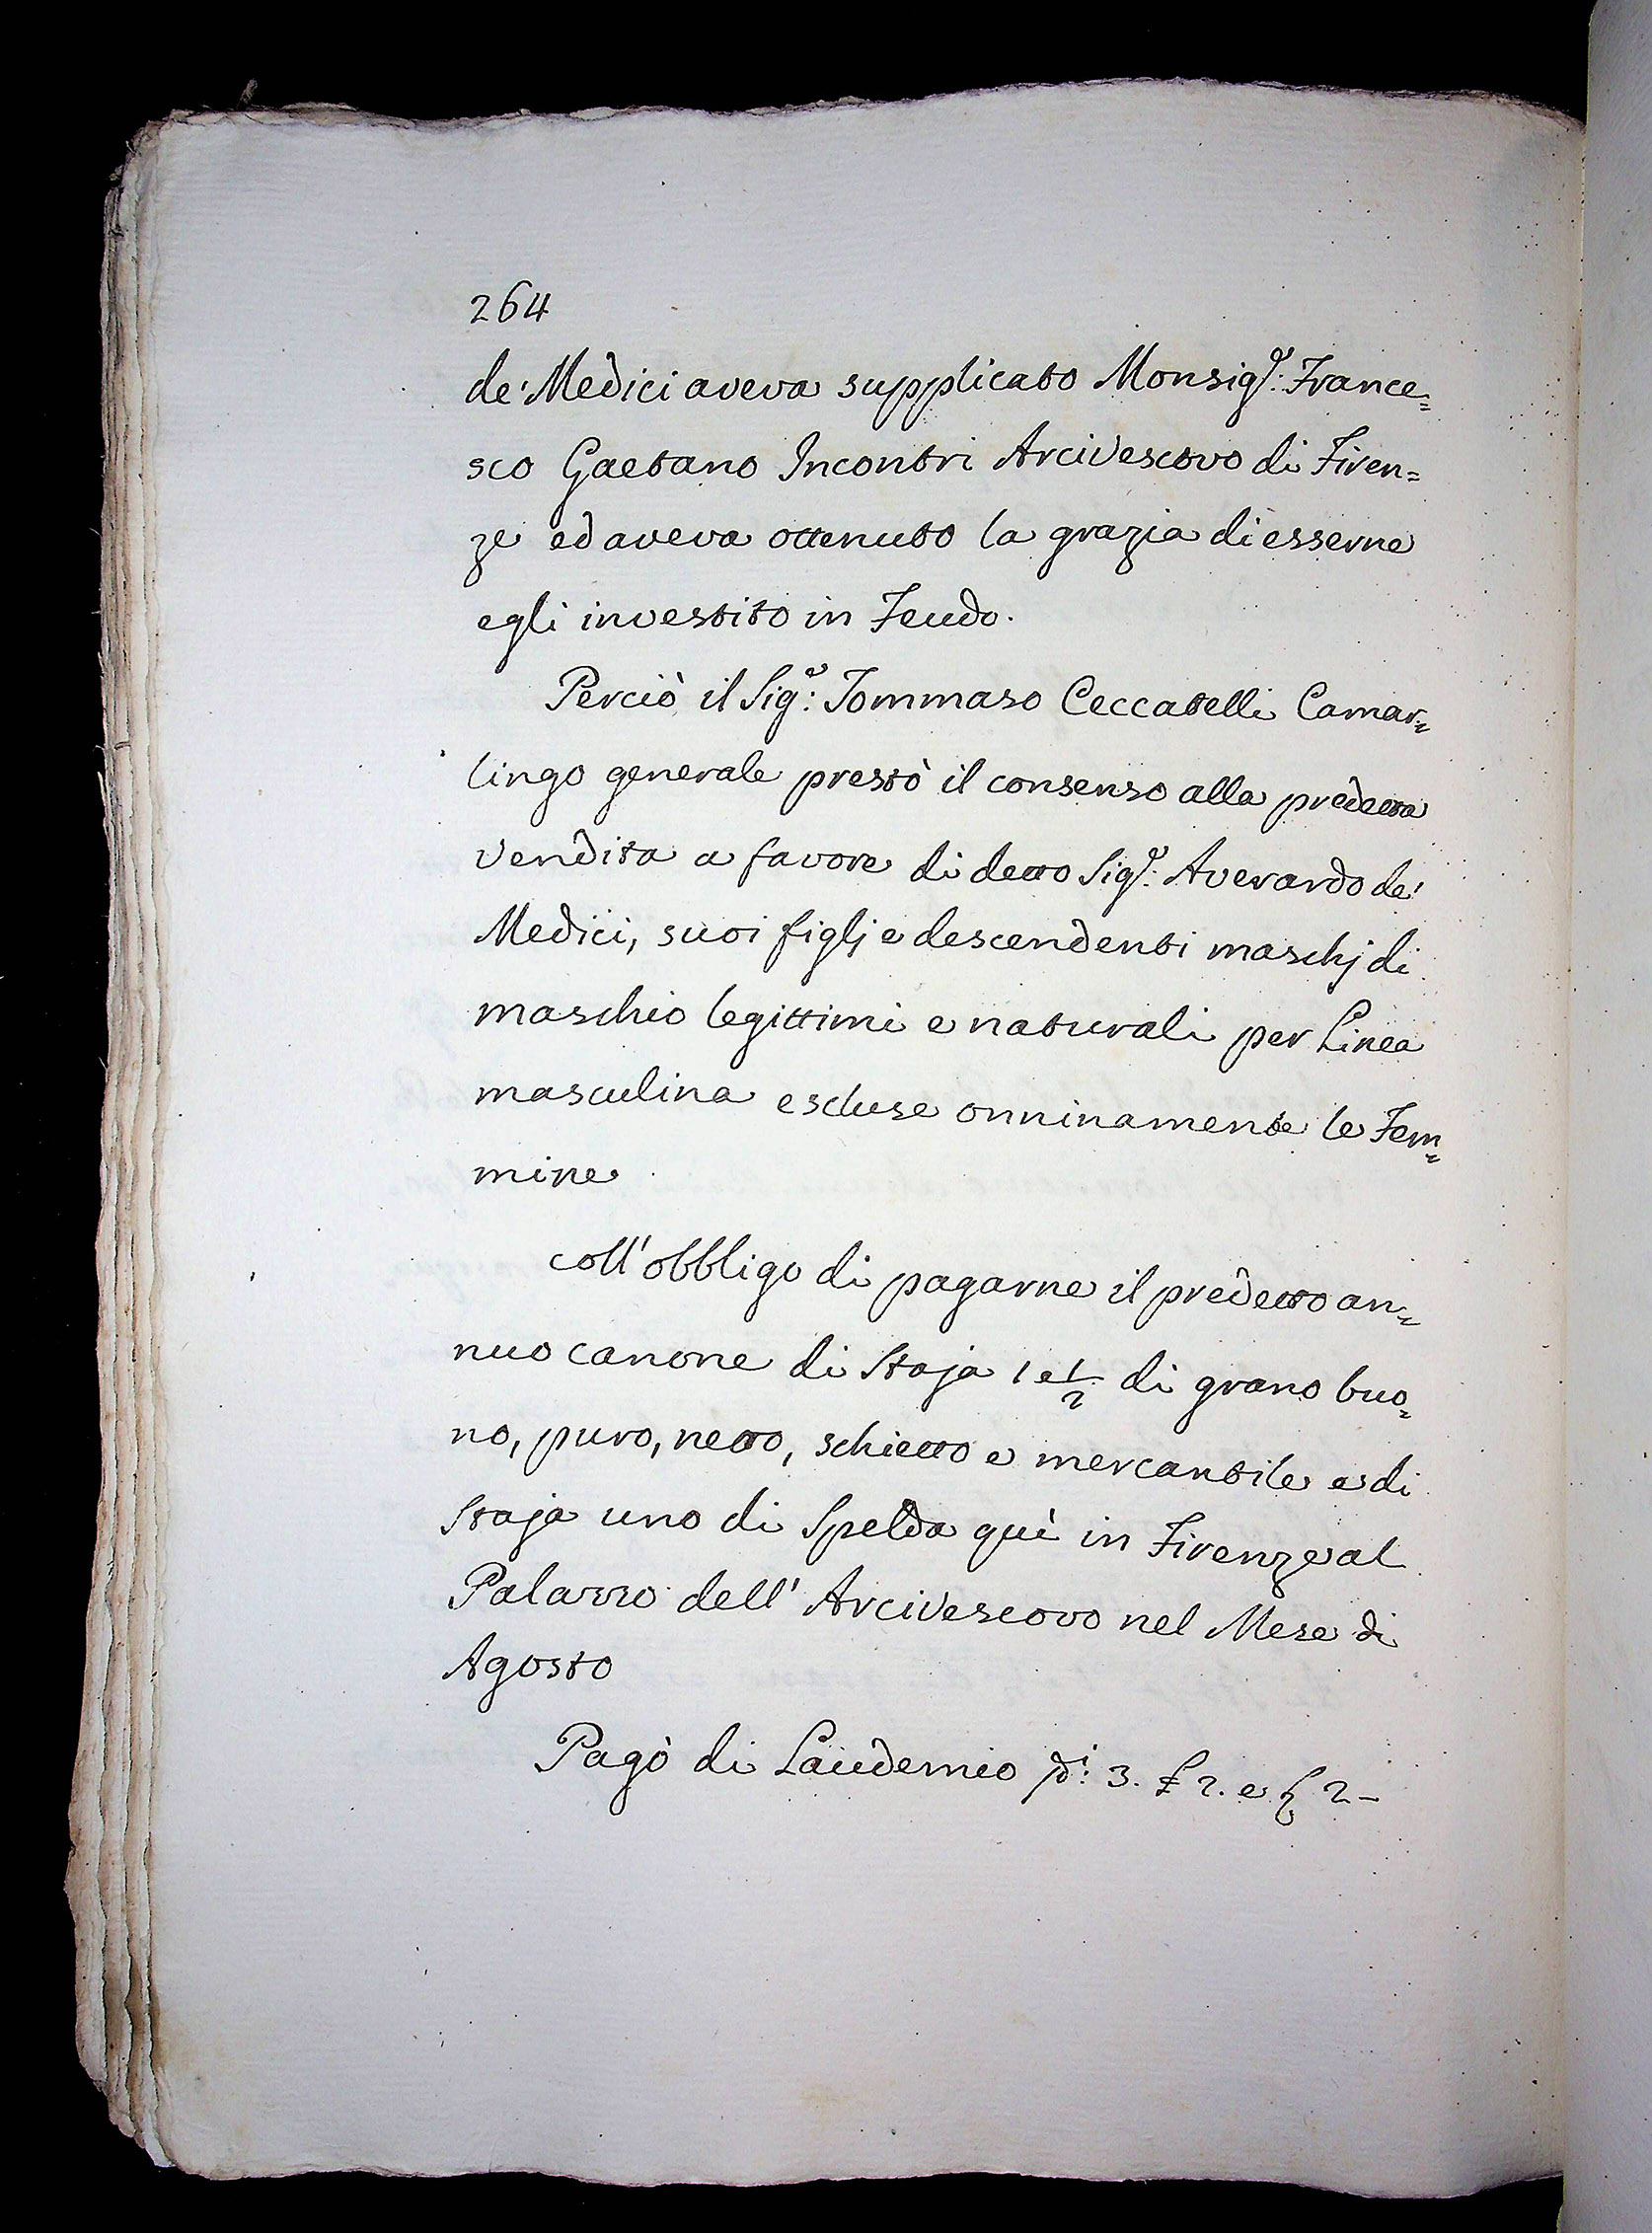 264
de' Medici aveva supplicato Monsig.r: France=
sco Gaetano Incontri Arcivescovo di Firen=
ze ed aveva ottenuto la grazia di esserne
egli investito in Feudo.
Perciò il Sig.r: Tommaso Ceccatelli Camar=
lingo generale prestò il consenso alla predetta
vendita a favore di detto Sig.r: Averardo de'
Medici, suoi figlj e descendenti maschj di
maschio legittimi e naturali per Linea
masculina escluse onninamente le Fem=
mine
coll' obbligo di pagarne il predetto an=
nuo canone di Staja 1 e 1/2 di grano buo=
no, puro, netto, schietto e mercantile e di
Staja uno di Spelda quì in Firenze al
Palazzo dell' Arcivescovo nel Mese di
Agosto
Pagò di Laudemio 3. £ 2. e 2 –